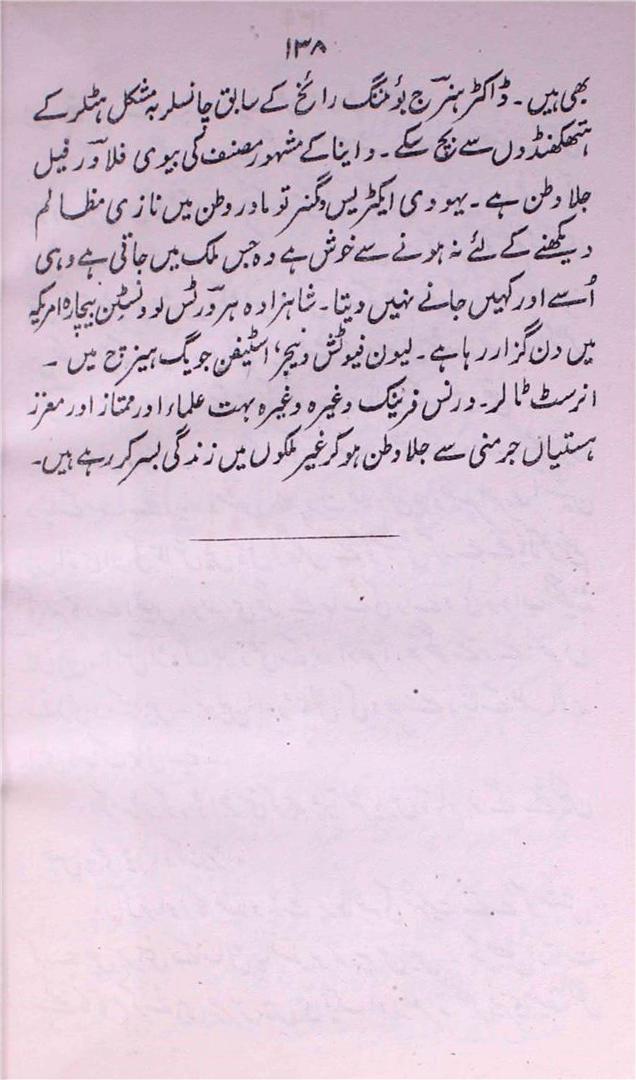 ۱۳۸
بھی ہیں۔ ڈاکٹر ہنرچ بوئمنگ رائخ کے سابق چانسلر بہ مشکل ہٹلر کے
ہتھکنڈوں سے بچ سکے۔ وایناکے مشہور مصنف کی بیوی فلاور فیل
جلا وطن ہے۔ یہودی ایکٹریس وگنر تو مادر وطن میں نازی مظالم
دیکھنے کے لئے نہ ہونے سے خوش ہے وہ جس ملک میں جاتی ہے وہی
اُسے اور کہیں جانے نہیں دیتا۔ شاہزادہ ہرورٹس لوونسٹن بیچارہ امریکہ
میں دن گزار رہا ہے۔ لیون فیوٹش ونیجر، اسٹیفن جویگ ہینرچ میں ۔
انرسٹ ٹالر۔ ورنس فرینک وغیرہ وغیرہ بہت علماء اور ممتاز اور معزز
ہستیاں جرمنی سے جلا وطن ہو کر غیر ملکوں میں زندگی بسر کر رہے ہیں۔